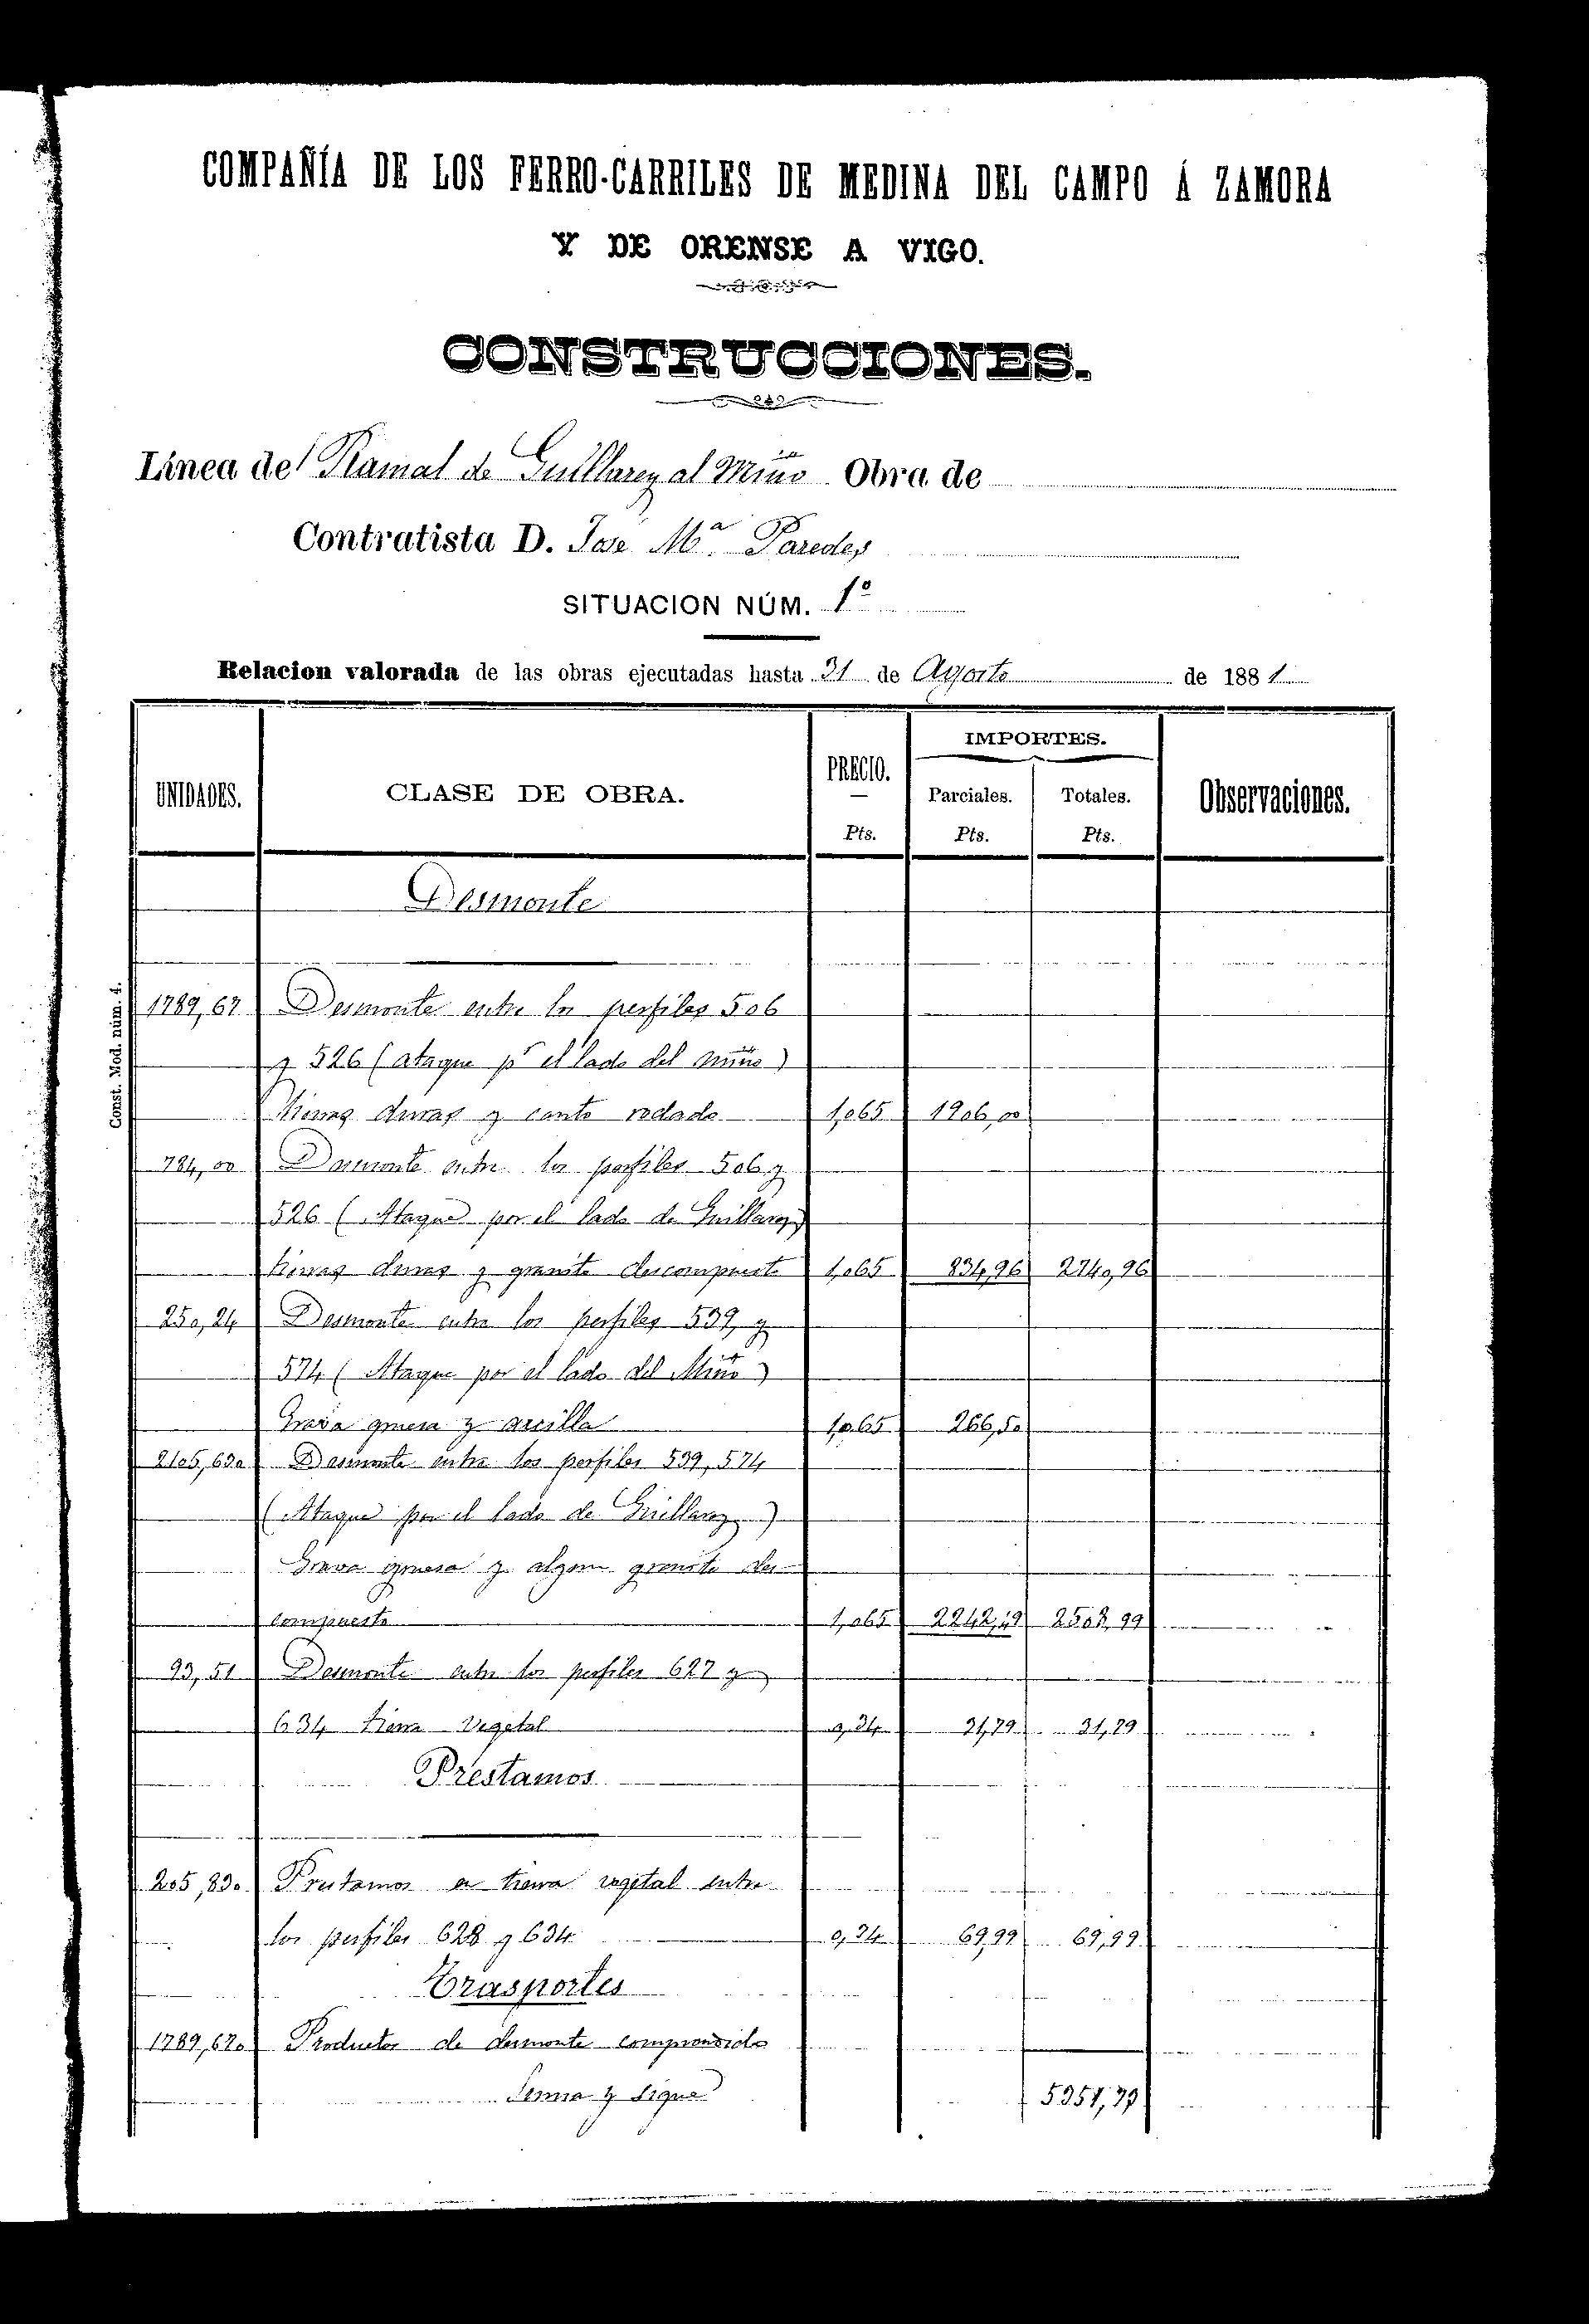 COMPAÑÍA DE LOS FERRO-CARRILES DE MEDINA DEL CAMPO Á ZAMORA
Y DE ORENSE A VIGO.
CONSTRUCCIONES.
Línea del Ramal de Guillarey al Miño Obra de
Contratista D. José Mª Paredes
SITUACION NÚM. 1º
Relacion valorada de las obras ejecutadas hasta 31 de Agosto de 1881
UNIDADES. CLASE DE OBRA. PRECIO. Pts. IMPORTES. Parciales. Pts. Totales. Pts. Observaciones.
Const. Mod. núm. 4.
Desmonte
1789,67 Desmonte entre los perfiles 506
y 526 (ataque pr el lado del Miño)
tierras duras y canto rodado 1,065 1906,00
784,00 Desmonte entre los perfiles 506 y
526 (Ataque por el lado de Guillarey)
tierras duras y granito descompuesto 1,065 834,96 2740,96
250,24 Desmonte entre los perfiles 539 y
574 (Ataque por el lado del Miño)
Grava gruesa y arcilla 1,065 266,50
2105,630 Desmonte entre los perfiles 539, 574
(Ataque por el lado de Guillarey)
Grava gruesa y algun granito des-
compuesto 1,065 2242,49 2508,99
93,51 Desmonte entre los perfiles 627 y
634 tierra vegetal 0,34 31,79 31,79
Prestamos
205,830 Prestamos en tierra vegetal entre
los perfiles 628 y 634 0,34 69,99 69,99
Trasportes
1789,670 Productos de desmonte comprendido
Suma y sigue 5351,73